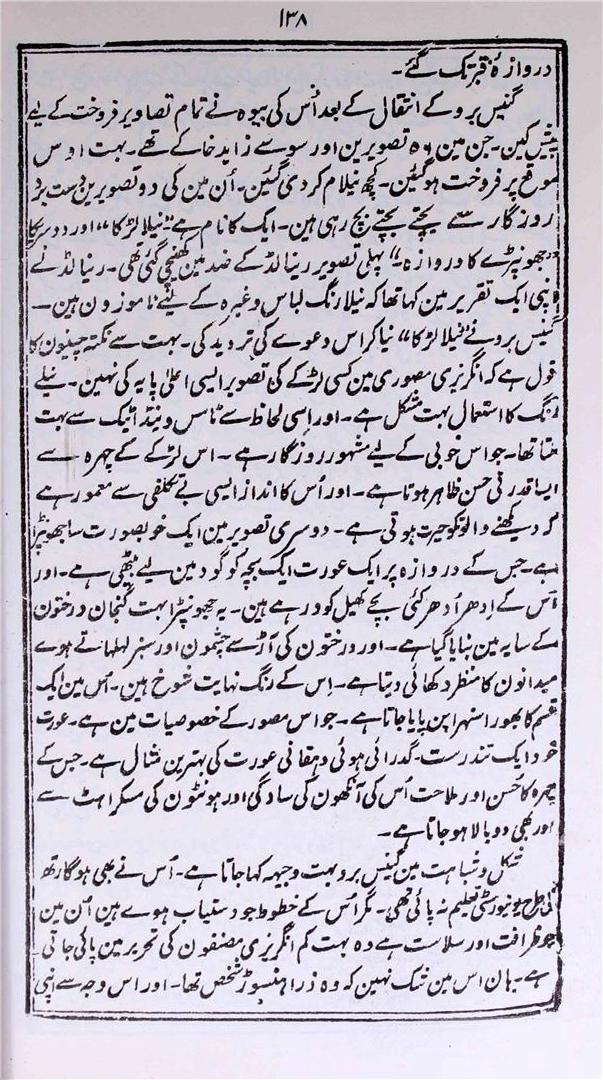 ۱۳۸
دروازۂ قبر تک گئے۔
گنیس برو کے انتقال کے بعد اُس کی بیوہ نے تمام تصاویر فروخت کے لیے
پیش کین۔ جن مین ۵۶ تصویرین اور سو سے زاید خاکے تھے۔ بہت اوس
موقع پر فروخت ہوگئین۔ کچھ نیلام کردی گئین۔ اُن مین کی دو تصویرین دست برد
روزگار سے بچتے بچتے بچ رہی ہین۔ ایک کا نام ہے "نیلا لڑکا" اور دوسری کا
"جھونپڑے کا دروازہ۔" پہلی تصویر رینالڈ کے ضد مین کھینچی گئی تھی۔ رینالڈ نے
اپنی ایک تقریر مین کہا تھا کہ نیلا رنگ لباس وغیرہ کے لیے ناموزون ہین۔
گنیس برو نے "نیلا لڑکا" بنا کر اس دعوے کی تردید کی۔ بہت سے نکتہ چینون کا
قول ہے کہ انگریزی مصوری مین کسی لڑکے کی تصویر ایسی اعلیٰ پایہ کی نہین۔ نیلے
رنگ کا استعمال بہت مشکل ہے۔ اور اسی لحاظ سے ٹامس وینڈائیک سے بہت
ملتا تھا۔ جو اس خوبی کے لیے مشہور روزگار ہے۔ اس لڑکے کے چہرہ سے
ایسا قدرتی حسن ظاہر ہوتا ہے۔ اور اُس کا انداز ایسی بے تکلفی سے معمور ہے
کہ دیکھنے والونکو حیرت ہوتی ہے۔ دوسری تصویر مین ایک خوبصورت سا جھونپڑا
ہے۔ جس کے دروازہ پر ایک عورت ایک بچہ کو گود مین لیے بیٹھی ہے۔ اور
اُس کے اِدھر اُدھر کئی بچے کھیل کود رہے ہین۔ یہ جھونپڑا بہت گنجان درختون
کے سایہ مین بنایا گیا ہے۔ اور درختون کی آڑ سے چشمون اور سبز لہلہاتے ہوے
میدانون کا منظر دکھائی دیتا ہے۔ اِس کے رنگ نہایت شوخ ہین۔ اُس مین ایک
قسم کا بھورا سنہرا پن پایا جاتا ہے۔ جو اس مصور کے خصوصیات مین ہے۔ عورت
خود ایک تندرست۔ گدرائی ہوئی دہقانی عورت کی بہترین مثال ہے۔ جس کے
چہرہ کا حُسن اور ملاحت اُس کی آنکھون کی سادگی اور ہونٹون کی مسکراہٹ سے
اور بھی دوبالا ہوجاتا ہے۔
شکل و شباہت مین گنیس برو بہت وجیہہ کہا جاتا ہے۔ اُس نے بھی ہوگارتھ
کی طرح یونیورسٹی تعلیم نہ پائی تھی۔ مگر اُس کے خطوط جو دستیاب ہوے ہین اُن مین
جو ظرافت اور سلاست ہے وہ بہت کم انگریزی مصنفون کی تحریر مین پائی جاتی
ہے۔ ہان اس مین شک نہین کہ وہ ذرا ہنسوڑ شخص تھا۔ اور اس وجہ سے اپنی